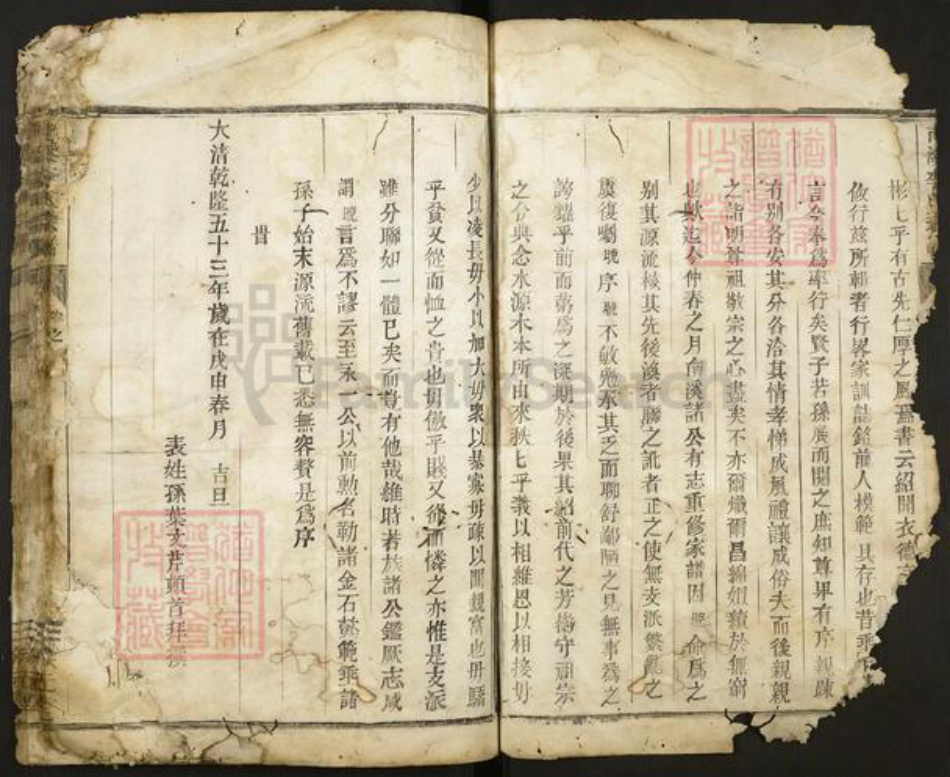 彬彬乎有古先仁厚之風焉書云紹聞衣德言
攸行茲所輯者行畧家訓誌銘前人模範具存也昔乘
言今奉爲率行矣賢子若孫廣而閱之庶知尊卑有序親疎
有別各安其分各洽其情孝悌成風禮讓成俗夫而後親親
之誼明尊祖敬宗之心盡矣不亦爾熾爾昌綿如績於無窮
也歟迄今仲春之月南溪諸公有志重修家譜因晚命爲之
別其源流核其先後渙者聯之訛者正之使無支派繁亂之
虞復囑晚序晚不敏勉承其乏而聊舒鄙陋之見無事爲之
誇耀乎前而第爲之深期於後果其紹前代之芳徽守祖宗
之令典念水源木本所由來秩七乎義以相維恩以相接毋
少以凌長毋小以加大毋衆以暴寡毋疎以間親富也毋驕
乎貧又從而恤之貴也毋傲乎賤又從而憐之亦惟是支派
雖分聯如一體已矣而豈有他哉維時若族諸公鑑厥志咸
謂晚言爲不謬云至永一公以前勲名勒諸金石懿範乘諸
孫子始末源流舊載已悉無容贅是爲序
旹
大清乾隆五十三年歲在戊申春月 吉旦
表姓孫葉文芹頓首拜撰
FamilySearch